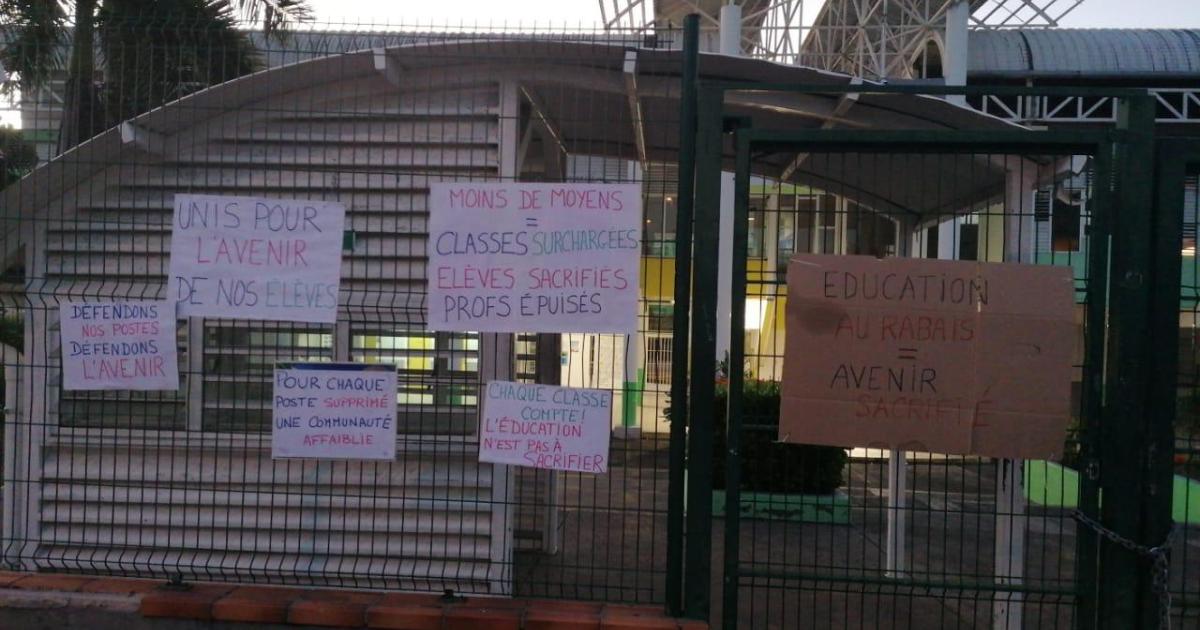 UNIS POUR
L'AVENIR
DE NOS ÉLÈVES
MOINS DE MOYENS
=
CLASSES SURCHARGÉES
ELÈVES SACRIFIÉS
PROFS ÉPUISÉS
DÉFENDONS
NOS POSTES
DÉFENDONS
L'AVENIR
POUR CHAQUE
POSTE SUPPRIMÉ
UNE COMMUNAUTÉ
AFFAIBLIE
CHAQUE CLASSE
COMPTE!
L'ÉDUCATION
N'EST PAS À
SACRIFIER
EDUCATION
AU RABAIS
=
AVENIR
SACRIFIÉ